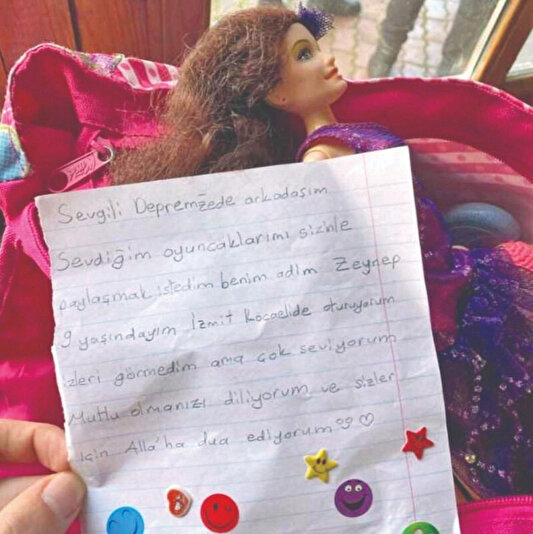 Sevgili Depremzede arkadaşım
Sevdiğim oyuncaklarımı sizinle
paylaşmak istedim benim adım Zeynep
9 yaşındayım İzmit Kocaelide oturuyorum
izleri görmedim ama çok seviyorum
Mutlu olmanızı diliyorum ve sizler
için Alla'ha dua ediyorum